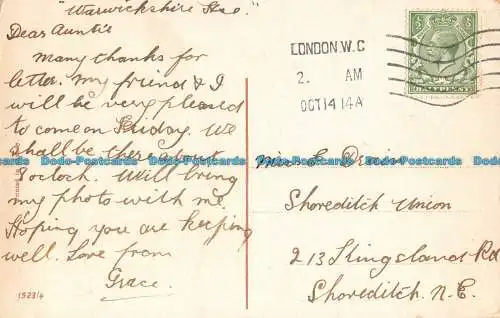 "Warwickshire Hse"
Dear Auntie
Many thanks for
letter. My friend & I
will be very pleased
to come on Friday. We
shall be there about
8 o'clock. Will bring
my photo with me
Hoping you are keeping
well. Love from
Grace.
1523/4
LONDON. W.C
2. AM
OCT 14 14A
HALFPENNY
Miss E
Shoreditch Union
213 Kingsland Rd
Shoreditch. N.E.
Dodo-Postcards Dodo-Postcards Dodo-Postcards Dodo-Postcards Dodo-Postcards